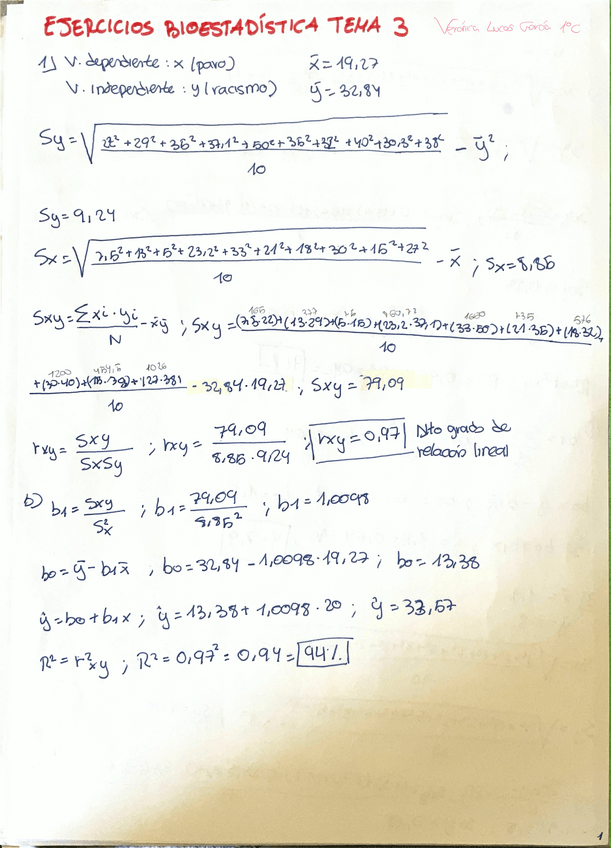 EJERCICIOS BIOESTADÍSTICA TEMA 3 Verónica Lucas García 1ºC
1) V. dependiente: x (paro) x̄ = 19,27
V. independiente: y (racismo) ȳ = 32,84
Sy = √ 22² + 29² + 36² + 37,1² + 50² + 35² + 32² + 40² + 30,3² + 38² / 10 - ȳ² ;
Sy = 9,24
Sx = √ 7,5² + 13² + 5² + 23,2² + 33² + 21² + 18² + 30² + 15² + 27² / 10 - x̄ ; Sx = 8,85
165 377 75 860,72 1650 735 576
Sxy = Σxi · yi / N - x̄ȳ ; Sxy = (7,5·22)+(13·29)+(5·15)+(23,2·37,1)+(33·50)+(21·35)+(18·32) / 10
1200 454,5 1026
+(30·40)+(15·30)+(27·38) / 10 - 32,84 · 19,27 ; Sxy = 79,09
rxy = Sxy / SxSy ; rxy = 79,09 / 8,85 · 9,24 ; rxy = 0,97 Alto grado de relación lineal
b) b1 = Sxy / S²x ; b1 = 79,09 / 8,85² ; b1 = 1,0098
b0 = ȳ - b1x̄ ; b0 = 32,84 - 1,0098 · 19,27 ; b0 = 13,38
ŷ = b0 + b1x ; ŷ = 13,38 + 1,0098 · 20 ; ŷ = 33,57
R² = r²xy ; R² = 0,97² = 0,94 = 94%
1